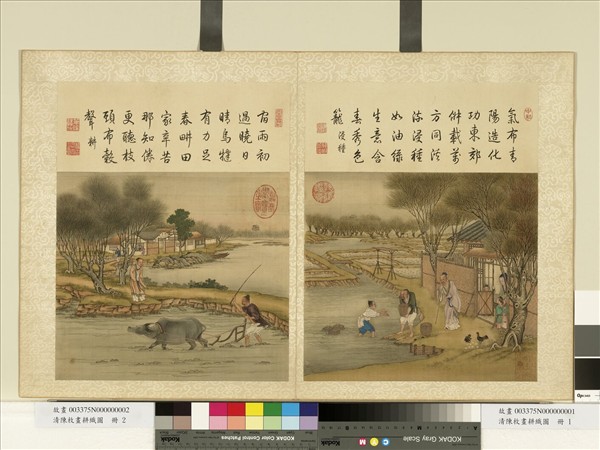 氣布青
陽造化
功東郊
俶載萬
方同溪
流浸種
如油綠
生意含
春秀色
籠 浸種
宿雨初
過曉日
晴烏犍
有力足
春畊田
家辛苦
那知倦
更聽枝
頭布穀
聲 耕
故畫 003375N000000002
清陳枚畫耕織圖 冊 2
故畫 003375N000000001
清陳枚畫耕織圖 冊 1
KODAK Color Control Patches
KODAK Gray Scale
C Y M
Kodak